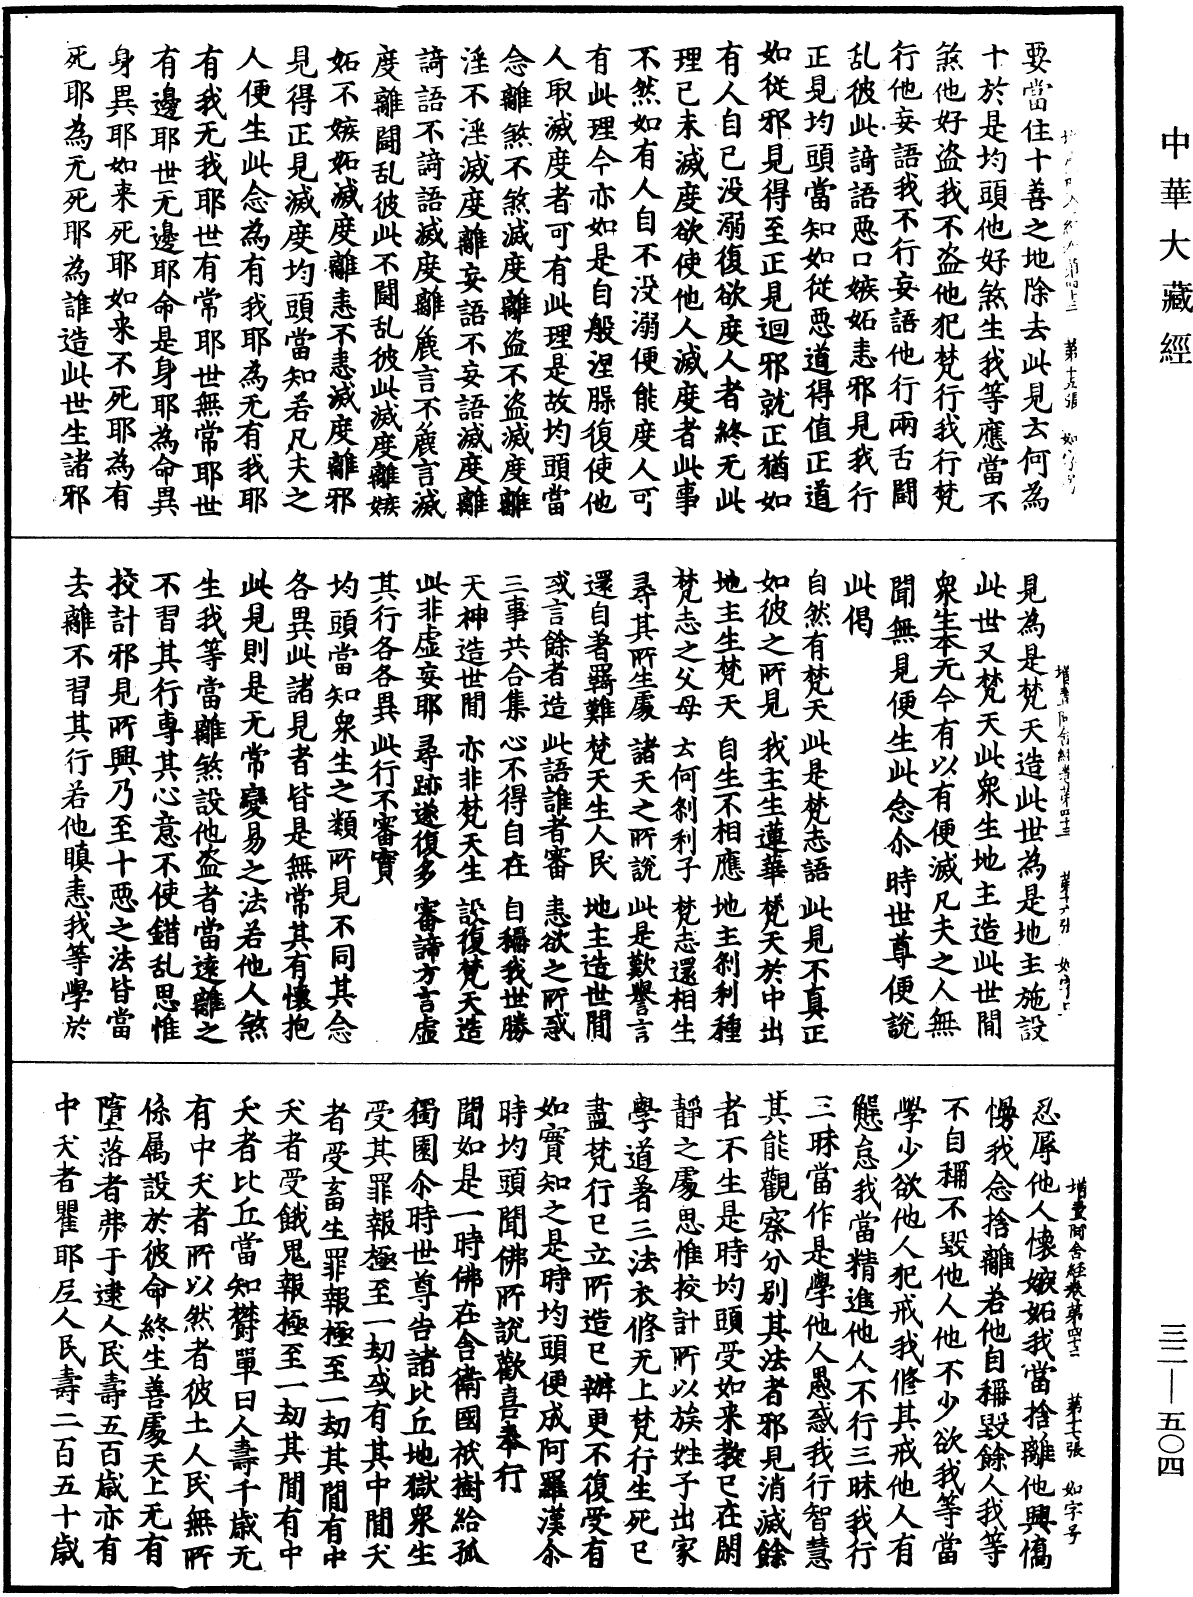 中華大藏經
要當住十善之地除去此見云何為
十於是均頭他好煞生我等應當不
煞他好盗我不盗他犯梵行我行梵
行他妄語我不行妄語他行兩舌鬪
乱彼此諍語惡口嫉妬恚邪見我行
正見均頭當知如從惡道得值正道
如從邪見得至正見迴邪就正猶如
有人自己没溺復欲度人者終无此
理己未滅度欲使他人滅度者此事
不然如有人自不没溺便能度人可
有此理今亦如是自般涅槃復使他
人取滅度者可有此理是故均頭當
念離煞不煞滅度離盗不盗滅度離
淫不淫滅度離妄語不妄語滅度離
諍語不諍語滅度離麁言不麁言滅
度離鬪乱彼此不鬪乱彼此滅度離嫉
妬不嫉妬滅度離恚不恚滅度離邪
見得正見滅度均頭當知若凡夫之
人便生此念為有我耶為无有我耶
有我无我耶世有常耶世無常耶世
有邊耶世无邊耶命是身耶為命異
身異耶如来死耶如来不死耶為有
死耶為无死耶為誰造此世生諸邪
增壹阿含經卷第四十三 第十六張 如字号
見為是梵天造此世為是地主施設
此世又梵天此衆生地主造此世間
衆生本无今有以有便滅凡夫之人無
聞無見便生此念尒時世尊便說
此偈
自然有梵天 此是梵志語 此見不真正
如彼之所見 我主生蓮華 梵天於中出
地主生梵天 自生不相應 地主刹利種
梵志之父母 云何刹利子 梵志還相生
尋其所生處 諸天之所說 此是歎譽言
還自著羇難 梵天生人民 地主造世間
或言餘者造 此語誰者審 恚欲之所惑
三事共合集 心不得自在 自稱我世勝
天神造世間 亦非梵天生 設復梵天造
此非虛妄耶 尋跡遂復多 審諦方言虛
其行各各異 此行不審實
均頭當知衆生之類所見不同其念
各異此諸見者皆是無常其有懷抱
此見則是无常變易之法若他人煞
生我等當離煞設他盗者當遠離之
不習其行專其心意不使錯乱思惟
挍計邪見所興乃至十惡之法皆當
去離不習其行若他瞋恚我等學於
增壹阿含經卷第四十三 第十七張 如字号
忍辱他人懷嫉妬我當捨離他興憍
慢我念捨離若他自稱毀餘人我等
不自稱不毀他人他不少欲我等當
學少欲他人犯戒我修其戒他人有
懈怠我當精進他人不行三昧我行
三昧當作是學他人愚惑我行智慧
其能觀察分别其法者邪見消滅餘
者不生是時均頭受如来教已在閑
靜之處思惟挍計所以族姓子出家
學道著三法衣修无上梵行生死已
盡梵行已立所造已辦更不復受有
如實知之是時均頭便成阿羅漢尒
時均頭聞佛所說歡喜奉行
聞如是一時佛在舍衛國祇樹給孤
獨園尒時世尊告諸比丘地獄衆生
受其罪報極至一劫或有其中間夭
者受畜生罪報極至一劫其間有中
夭者受餓鬼報極至一劫其間有中
夭者比丘當知欝單曰人壽千歲无
有中夭者所以然者彼土人民無所
係属設於彼命終生善處天上无有
墮落者弗于逮人民壽五百歲亦有
中夭者瞿耶尼人民壽二百五十歲
三二—五〇四